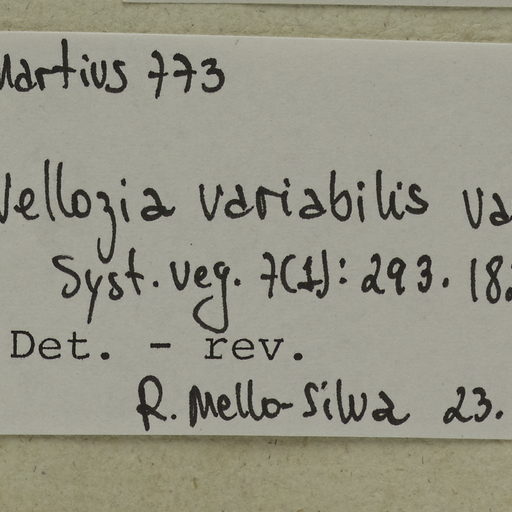 Martius 773
Vellozia variabilis va
Syst. veg. 7(1): 293. 182
Det. - rev.
R. Mello-Silva 23.